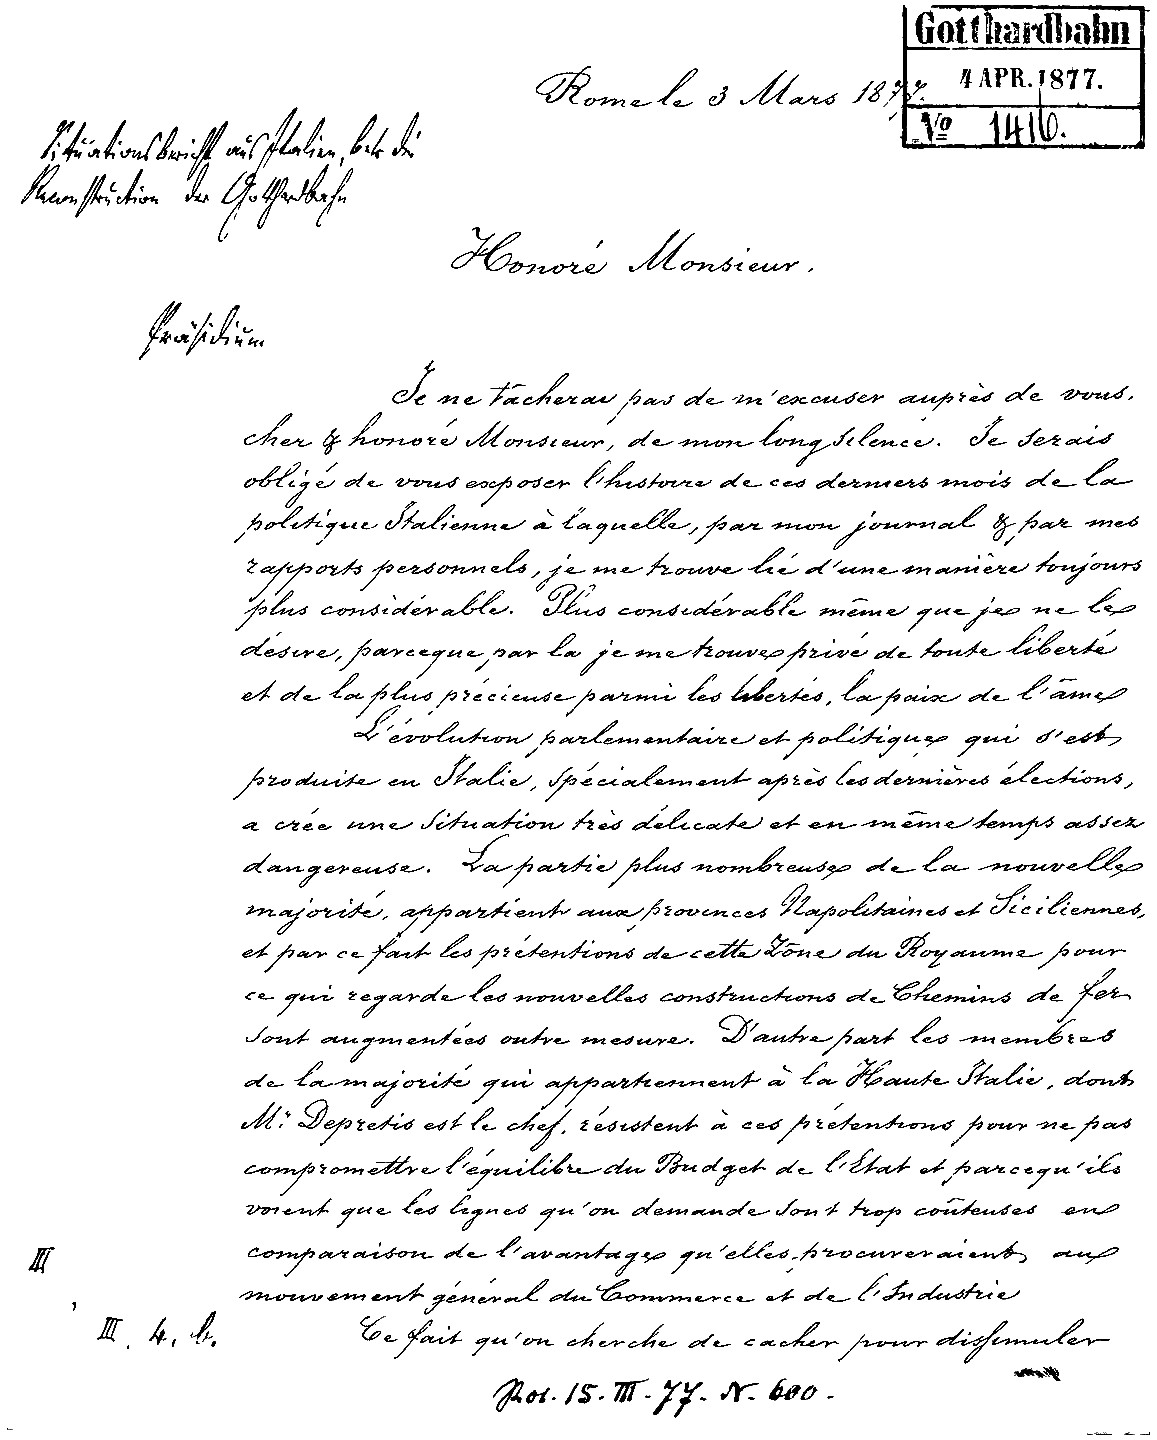 Gotthardbahn
4 APR. 1877.
No 1416.
Rome le 3 Mars 1877.
Situationsbericht aus Italien, betr. die
Reconstruction der Gotthardbahn
Honoré Monsieur.
Präsidium
Je ne tâcherai pas de m'excuser auprès de vous,
cher & honoré Monsieur, de mon long silence. Je serais
obligé de vous exposer l'histoire de ces derniers mois de la
politique Italienne à laquelle, par mon journal & par mes
rapports personnels, je me trouve lié d'une manière toujours
plus considérable. Plus considérable même que je ne le
désire, parceque par la je me trouve privé de toute liberté
et de la plus précieuse parmi les libertés, la paix de l'âme
L'évolution parlementaire et politique qui s'est
produite en Italie, spécialement après les dernières élections,
a crée une situation très délicate et en même temps assez
dangereuse. La partie plus nombreuse de la nouvelle
majorité, appartient aux provences Napolitaines et Siciliennes,
et par ce fait les prétentions de cette Zône du Royaume pour
ce qui regarde les nouvelles constructions de Chemins de fer
sont augmentées outre mesure. D'autre part les membres
de la majorité qui appartiennent à la Haute Italie, dont
Mr. Depretis est le chef, résistent à ces prétentions pour ne pas
compromettre l'équilibre du Budget de l'Etat et parcequ'ils
voient que les lignes qu'on demande sont trop coûteuses en
comparaison de l'avantage qu'elles procureraient au
mouvement général du Commerce et de l'Industrie
Ce fait qu'on cherche de cacher pour dissimuler
III
III. 4. b.
15. III. 77. N. 600.